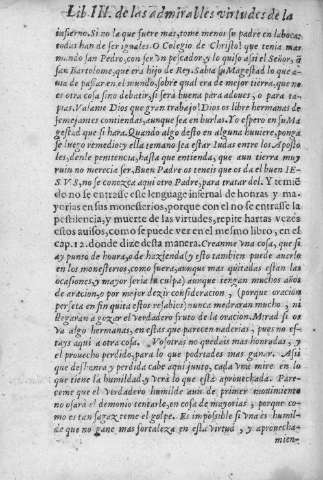 Lib. III. de las admirables virtudes de la
infierno. Si no la que fuere mas, tome menos su padre en la boca:
todas han de ser iguales. O Colegio de Christo! que tenia mas
mando san Pedro, con ser vn pescador, y lo quiso assi el Señor, q̃
san Bartolome, que era hijo de Rey. Sabia su Magestad lo que a-
uia de passar en el mundo, sobre qual era de mejor tierra, que no
es otra cosa sino debatir, si será buena para adoues, o para ta-
pias. Valame Dios que gran trabajo! Dios os libre hermanas de
semejantes contiendas, aunque sea en burlas. Yo espero en su Ma
gestad que si hara. Quando algo desto en alguna huuiere, ponga
se luego remedio: y ella temano sea estar Iudas entre los Aposto
les, denle penitencia, hasta que entienda, que aun tierra muy
ruin no merecia ser. Buen Padre os teneis que os da el buen IE-
SVS, no se conozca aqui otro Padre, para tratar del. Y temiẽ
do no le entrasse esse lenguaje infernal de honras y ma-
yorias en sus monesterios, porque con el no se entrasse la
pestilencia, y muerte de las virtudes, repite hartas vezes
estos auisos, como se puede ver en el mismo libro, en el
cap. 12. donde dize desta manera. Creanme vna cosa, que si
ay punto de honra, o de hazienda (y esto tambien puede auerlo
en los monesterios, como fuera, aunque mas quitadas estan las
ocasiones, y mayor seria la culpa) aunque tengan muchos años
de oracion, o por mejor dezir consideracion, (porque oracion
perfeta en fin quita estos resabios) nunca medraran mucho, ni
llegaran a gozar el verdadero fruto de la oracion. Mirad si os
va algo hermanas, en estas que parecen naderias, pues no es-
tays aqui a otra cosa. Vosotras no quedais mas honradas, y
el prouecho perdido, para lo que podriades mas ganar. Assi
que deshonra y perdida cabe aqui junto, cada vna mire en lo
que tiene la humildad, y verá lo que está aprouechada. Pare-
ceme que el verdadero humilde aun de primer mouimiento
no osará el demonio tentarle, en cosa de mayorias; porque co-
mo es tan sagaz teme el golpe. Es impossible si vna es humil-
de que no gane mas fortaleza en esta virtud, y aprouecha-
mien-